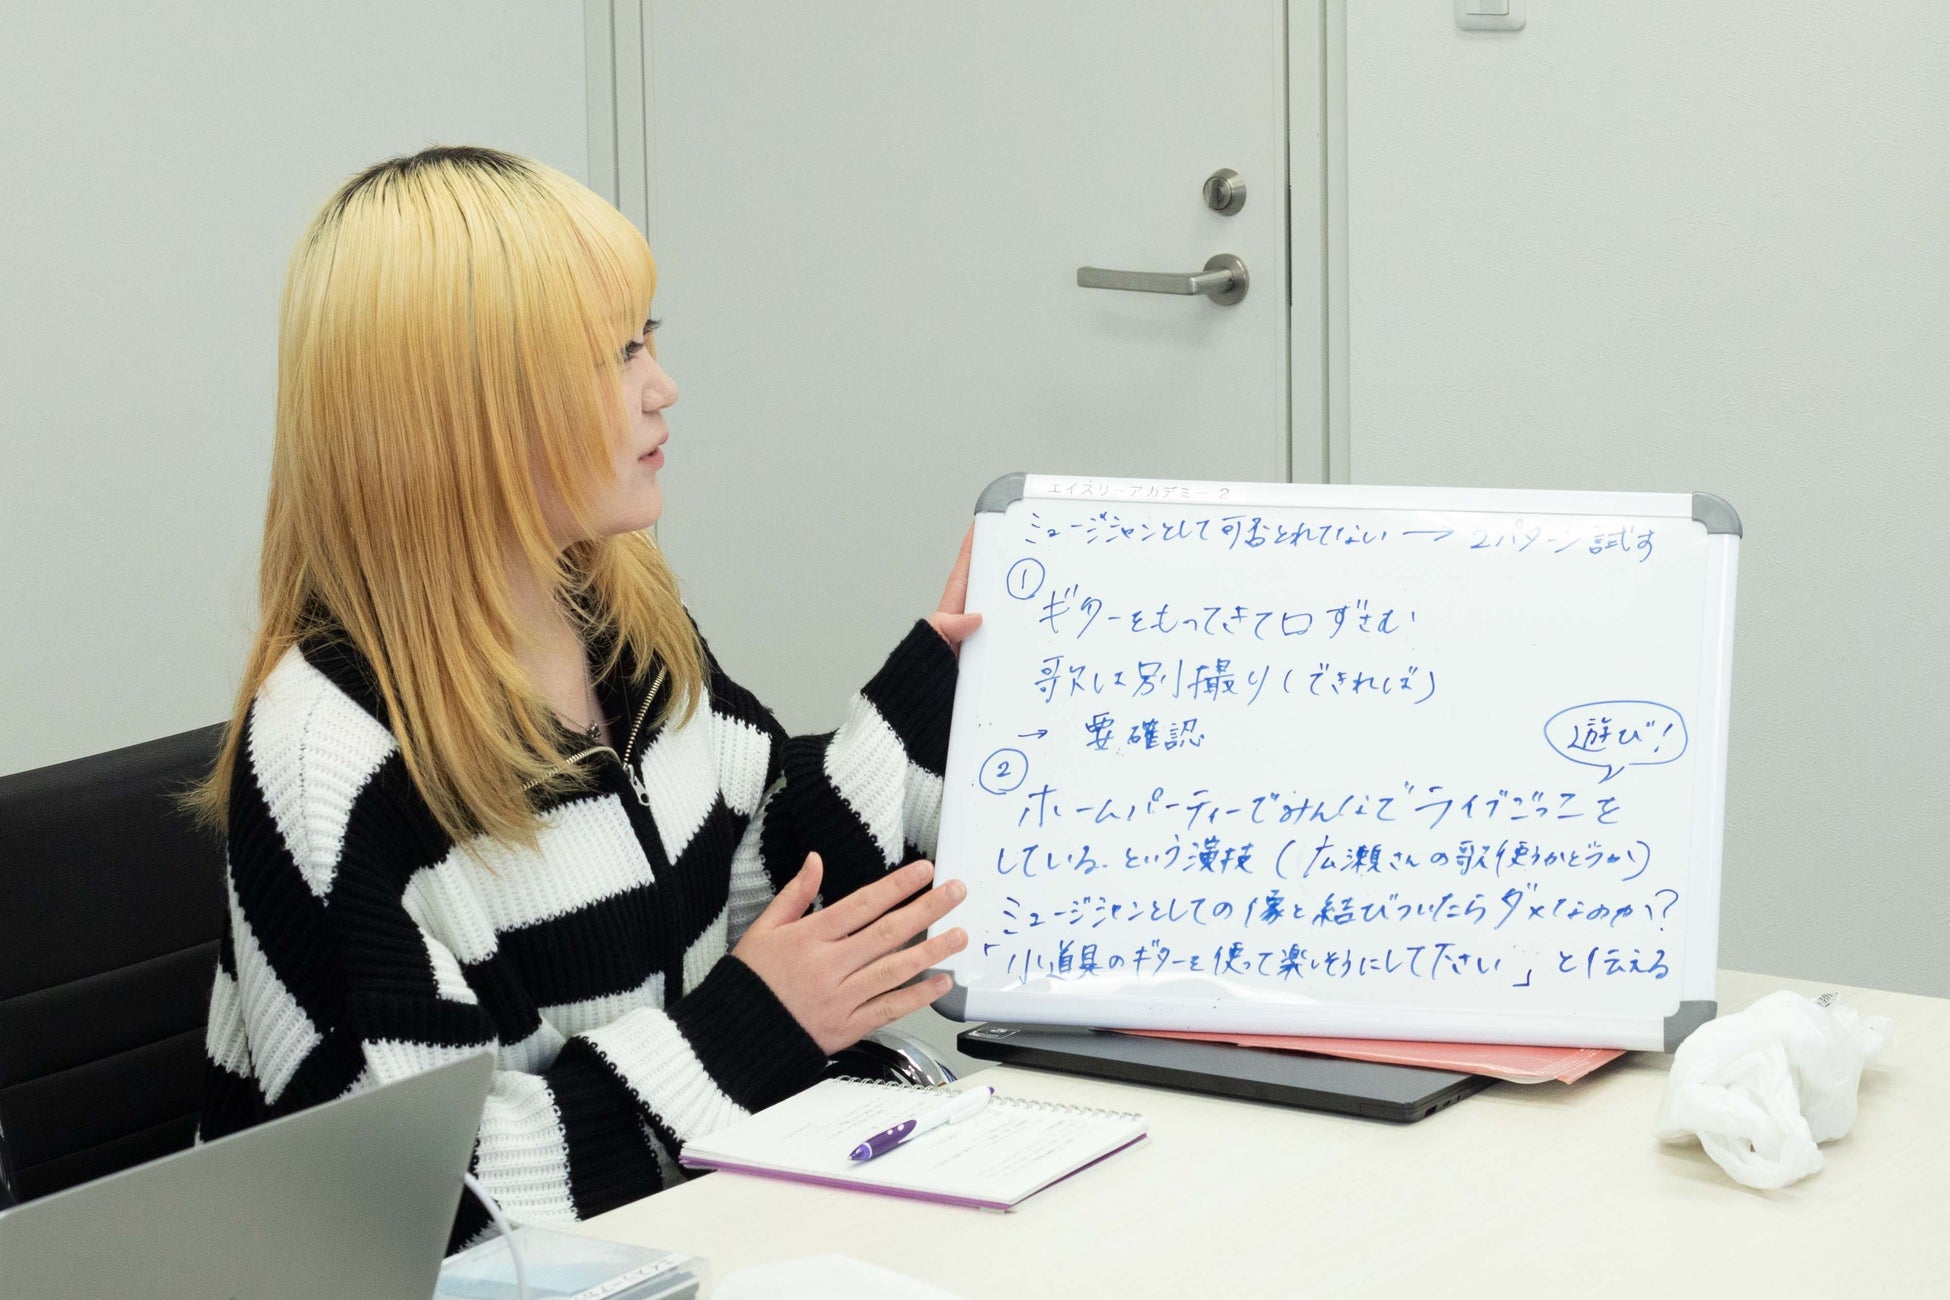 エイズリーアカデミー 2
ミュージシャンとして可否とれてない → 2パターン試す
①
ギターをもってきて口ずさむ
歌は別撮り(できれば)
→ 要確認
遊び!
②
ホームパーティーでみんなでライブごっこを
している。という演技(広瀬さんの歌使うかどうか)
ミュージシャンとしての像と結びついたらダメなのか?
「小道具のギターを使って楽しそうにして下さい」と伝える